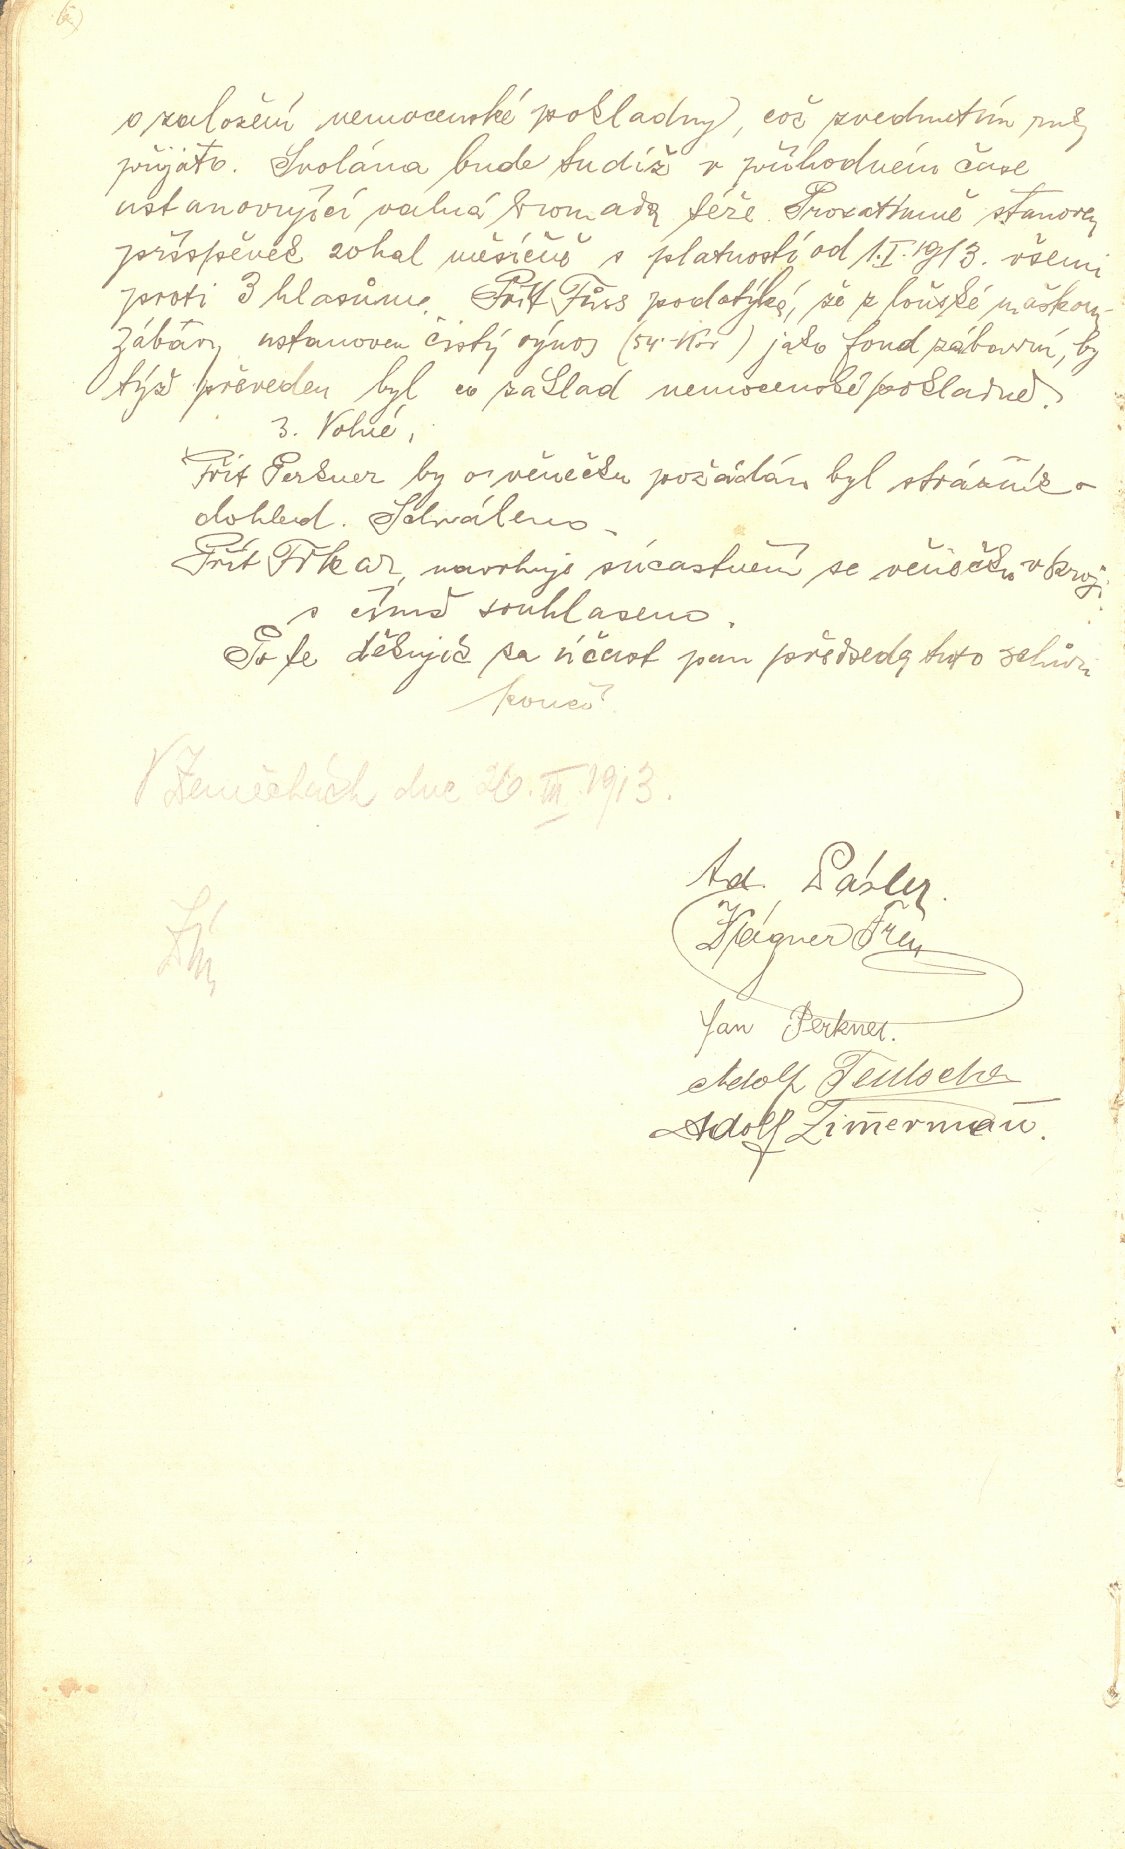 o založení nemocenské pokladny, což zvednutím ruky
přijato. Svolána bude tudíž v příhodném čase
ustanovující valná hromada téže. Prozatimně stanoven
příspěvek 20 hal měsíčně s platností od 1.I.1913. všemi
proti 3 hlasům. Přít Füss podotýká, že z loňské maškarní
zábavy ustanoven čistý výnos (54 Kor) jako fond zábavní, by
týž převeden byl co základ nemocenské pokladně.
3. Volné,
Přít Perkner by o věnečku požádán byl strážník o
dohled. Schváleno
Přít Trkar, navrhuje súčastnění se věnečku v kroji
s čímž souhlaseno.
Po té děkujíc za účast pan předseda tuto schůzi
končí.
V dne 26.III.1913.
Ad. Pásler.
Wágner Fren
Jan Perkner.
Adolf Teutscher
Adolf Zim̄erman̄.